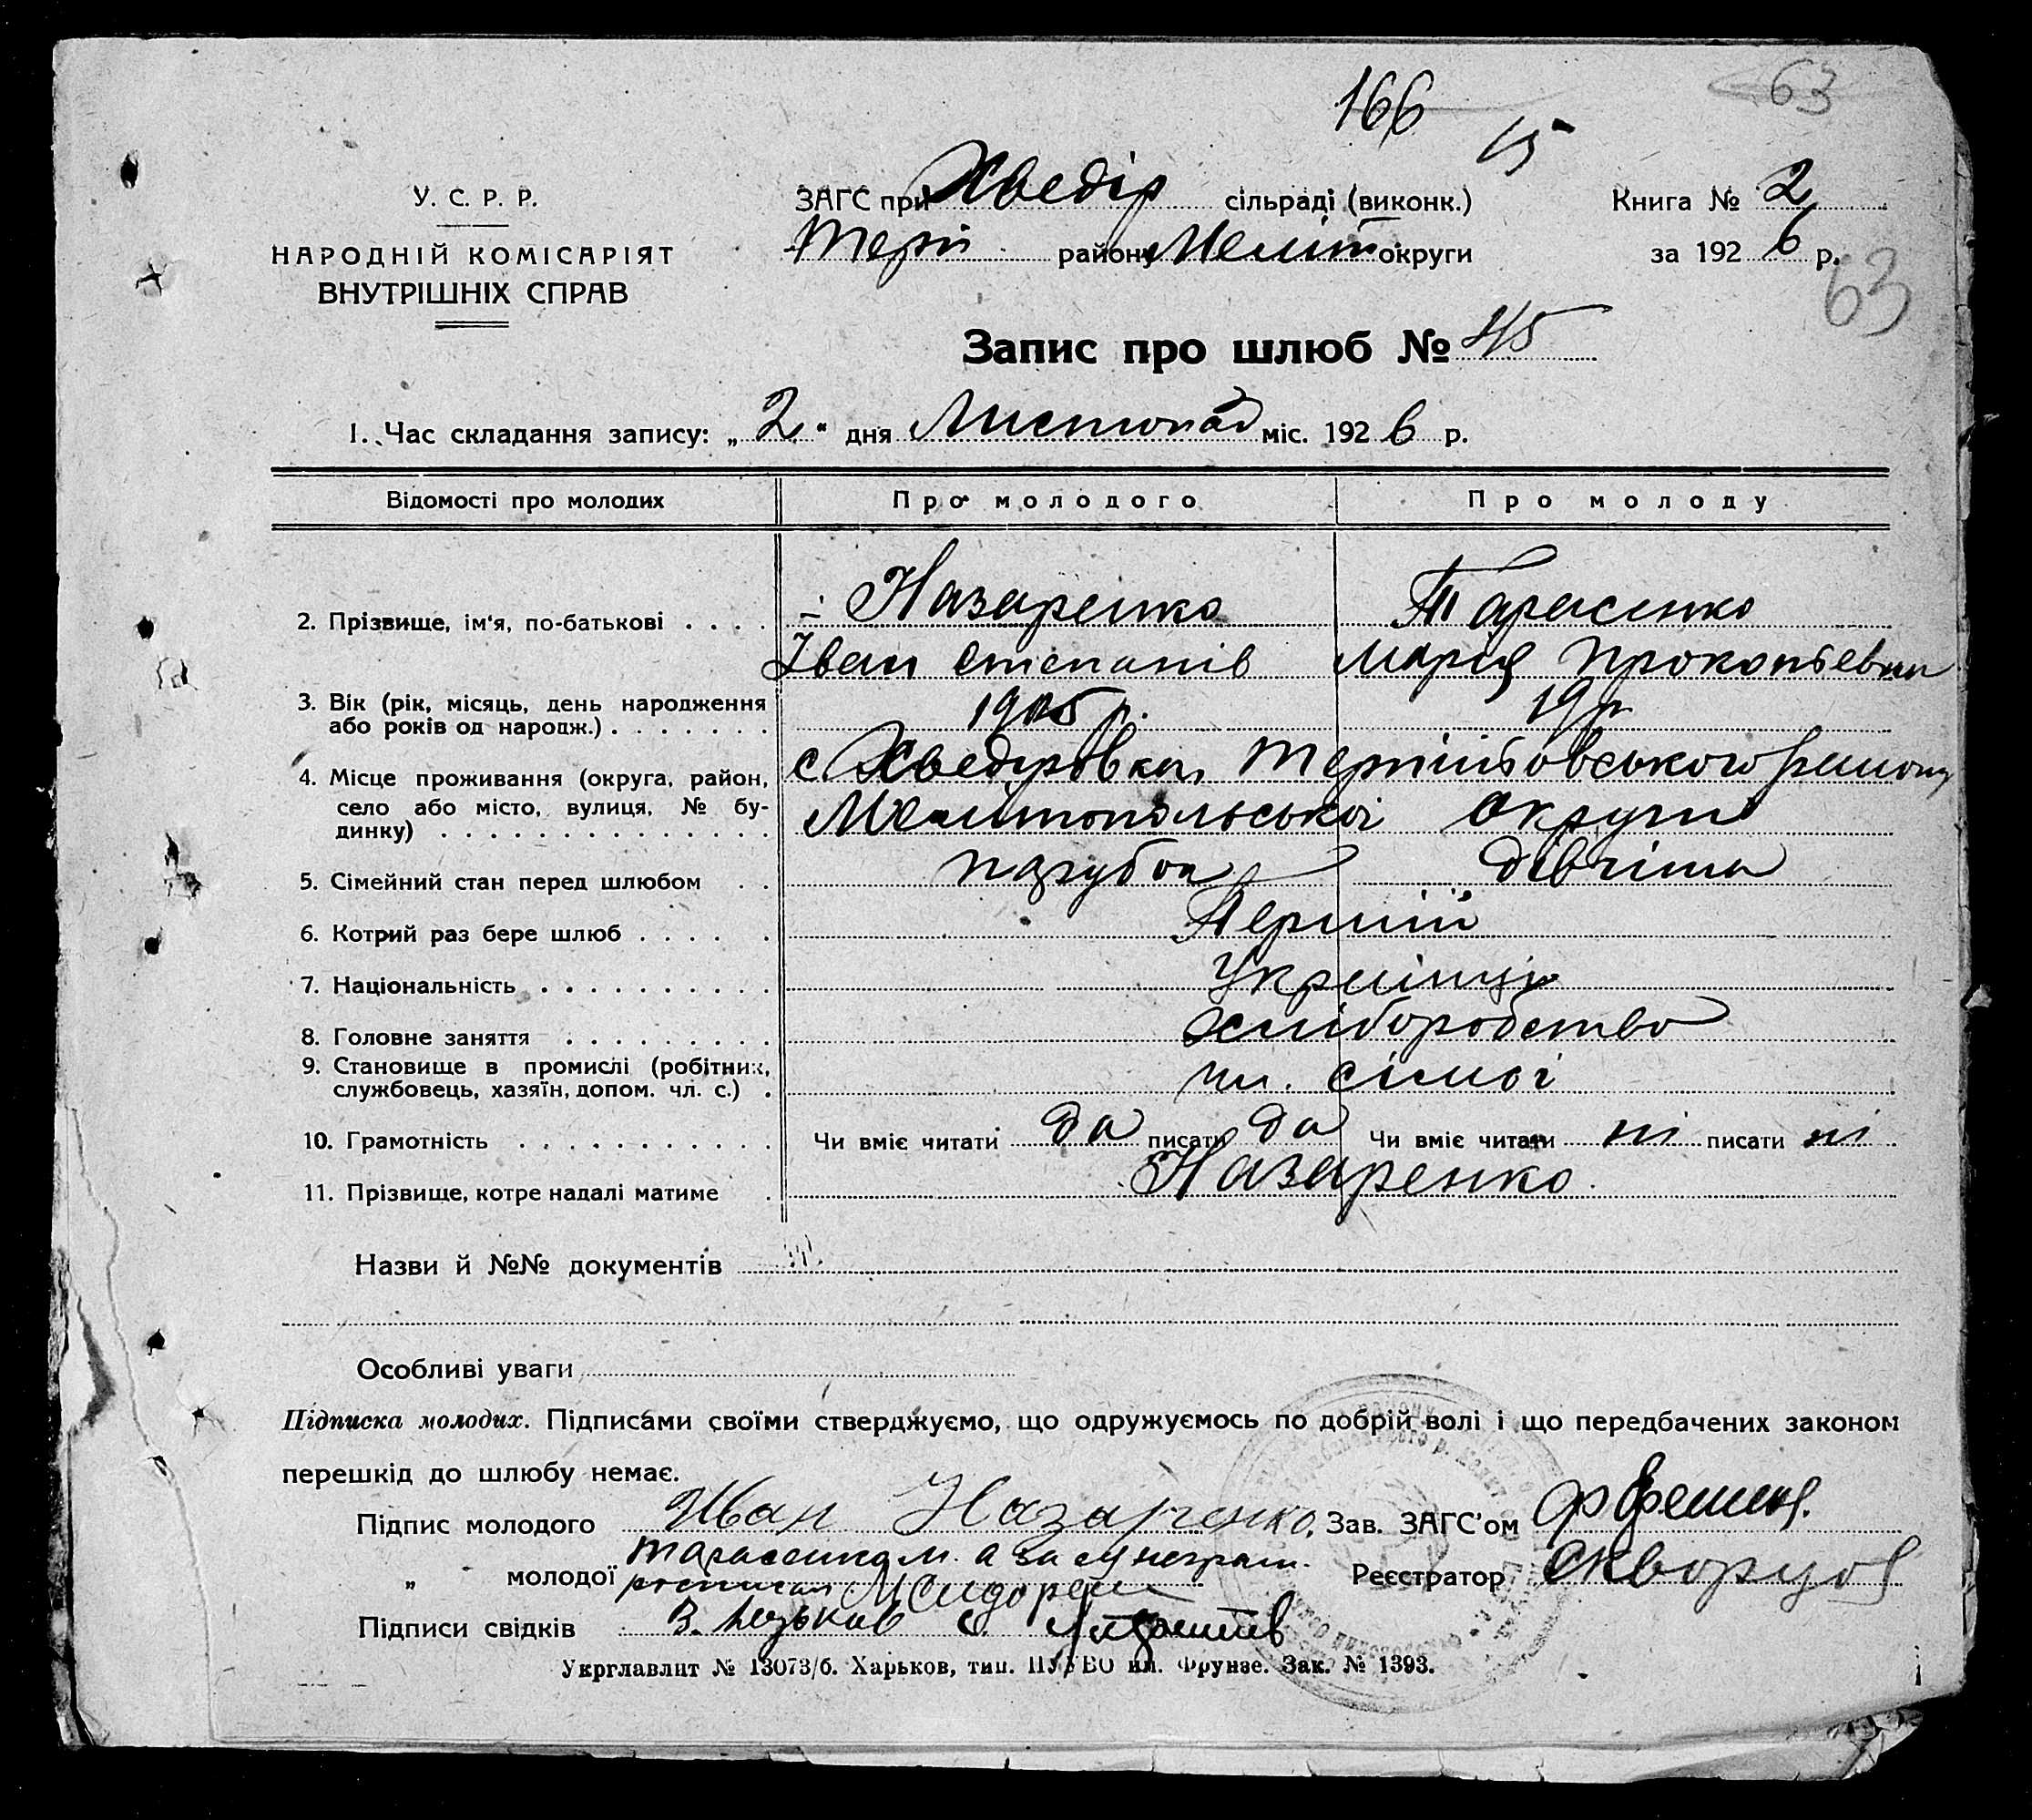 166
63
15
У. С. Р. Р.
НАРОДНІЙ КОМІСАРІЯТ
ВНУТРІШНІХ СПРАВ
ЗАГС при Хведір сільраді (виконк.)
Терп району Меліт округи
Книга № 2
за 1926 р.
63
Запис про шлюб № 45
1. Час складання запису: „2" дня Листопад міс. 1926 р.
Відомості про молодих Про молодого Про молоду
2. Прізвище, ім'я, по-батькові . . . . Назаренко Тарасенко
Іван Степанів Марія Прокопьевна
3. Вік (рік, місяць, день народження
або років од народж.) . . . . . . . 1905 р. 19 р
4. Місце проживання (округа, район,
село або місто, вулиця, № бу-
динку) . . . . . . . . . . . . . .
с Хведоровка, Терпіньовського району
Мелітопольської округи
5. Сімейний стан перед шлюбом . . парубок дівчина
6. Котрий раз бере шлюб . . . . . Перший
7. Національність . . . . . . . . . . Українці
8. Головне заняття . . . . . . . . . хліборобство
9. Становище в промислі (робітник,
службовець, хазяїн, допом. чл. с.) . чл. сімої
10. Грамотність . . . . . . . . . . . Чи вміє читати да писати да Чи вміє читати ні писати ні
11. Прізвище, котре надалі матиме . Назаренко
Назви й №№ документів
Особливі уваги
Підписка молодих. Підписами своїми стверджуємо, що одружуємось по добрій волі і що передбачених законом
перешкід до шлюбу немає.
Підпис молодого Иван Назаренко. Зав. ЗАГС'ом
„ молодої Тарасенко М. а за еи неграм.
росписал М Сидорен Реєстратор Скворцов
Підписи свідків
Укрглавліт № 13073/б. Харьков, тип. ПУУВО им. Фрунзе. Зак. № 1393.